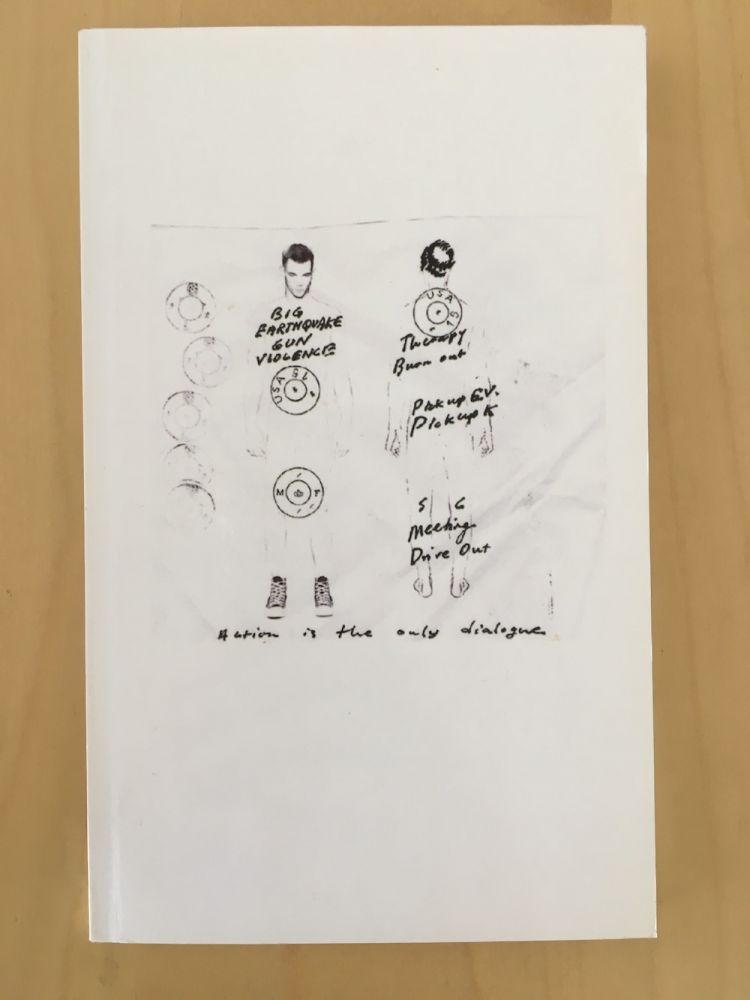 BIG
EARTHQUAKE
GUN
VIOLENCE
USA 15
M F
USA 15
Therapy
Burn out
Pickup EV.
Pickup K
S G
Meeting
Drive Out
Action is the only dialogue